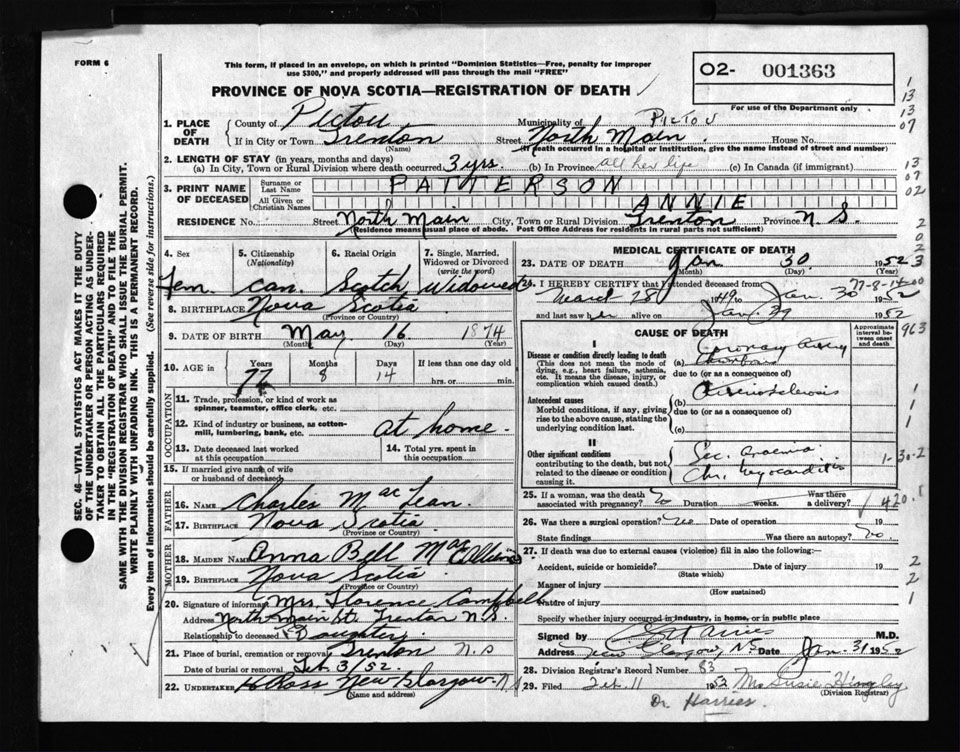 FORM 6
This form, if placed in an envelope, on which is printed "Dominion Statistics—Free, penalty for improper
use $300," and properly addressed will pass through the mail "FREE"
PROVINCE OF NOVA SCOTIA—REGISTRATION OF DEATH
O2- 001363
For use of the Department only
1. PLACE OF DEATH
County of Pictou Municipality of PICTOU
If in City or Town Trenton Street North Main House No.
(Name) (If death occurred in a hospital or institution, give the name instead of street and number)
2. LENGTH OF STAY (in years, months and days)
(a) In City, Town or Rural Division where death occurred 3 yrs. (b) In Province all her life (c) In Canada (if immigrant)
3. PRINT NAME OF DECEASED
Surname or Last Name PATTERSON
All Given or Christian Names ANNIE
RESIDENCE No. Street North Main City, Town or Rural Division Trenton Province N S.
(Residence means usual place of abode. Post Office Address for residents in rural parts not sufficient)
4. Sex Fem.
5. Citizenship (Nationality) Can.
6. Racial Origin Scotch
7. Single, Married, Widowed or Divorced (write the word) Widowed
8. BIRTHPLACE Nova Scotia
(Province or Country)
9. DATE OF BIRTH May 16 1874
(Month) (Day) (Year)
10. AGE in Years Months Days If less than one day old
8 14 hrs. or min.
OCCUPATION
11. Trade, profession, or kind of work as
spinner, teamster, office clerk, etc.
12. Kind of industry or business, as cotton-
mill, lumbering, bank, etc. at home.
13. Date deceased last worked at this occupation
14. Total yrs. spent in this occupation
15. If married give name of wife
or husband of deceased
FATHER
16. Name Charles MacLean
17. Birthplace Nova Scotia
(Province or Country)
MOTHER
18. MAIDEN NAME Anna Bell Mac
19. BIRTHPLACE Nova Scotia
(Province or Country)
20. Signature of informant Mrs. Florence Campbell
Address North Main St. Trenton N.S.
Relationship to deceased Daughter
21. Place of burial, cremation or removal Trenton N.S
Date of burial or removal Feb 3/52.
22. UNDERTAKER Ross New Glasgow N.S
(Name and address)
MEDICAL CERTIFICATE OF DEATH
23. DATE OF DEATH Jan. 30 1952
(Month) (Day) (Year)
24. I HEREBY CERTIFY that I attended deceased from
March 28 1949 to Jan. 30 1952
and last saw her alive on Jan. 29 1952
CAUSE OF DEATH
Approximate interval between onset and death
I
Disease or condition directly leading to death (a) Coronary Artery Thrombosis
(This does not mean the mode of
dying, e.g., heart failure, asthenia,
etc. It means the disease, injury, or
complication which caused death.)
due to (or as a consequence of)
Antecedent causes (b) Arteriosclerosis
Morbid conditions, if any, giving
rise to the above cause, stating the
underlying condition last.
due to (or as a consequence of)
(c)
II
Other significant conditions
contributing to the death, but not
related to the disease or condition
causing it.
Sec. Anaemia
Chr. Myocarditis
25. If a woman, was the death associated with pregnancy? No Duration weeks. Was there a delivery?
26. Was there a surgical operation? No Date of operation 19
State findings Was there an autopsy? No.
27. If death was due to external causes (violence) fill in also the following:—
Accident, suicide or homicide? Date of injury 19
(State which)
Manner of injury
(How sustained)
Nature of injury
Specify whether injury occurred in industry, in home, or in public place
Signed by Harries M.D.
Address New Glasgow N.S. Date Jan. 31 1952
28. Division Registrar's Record Number 83
29. Filed Feb. 11 1952 Mrs Susie
(Division Registrar)
Dr. Harries.
SEC. 46—VITAL STATISTICS ACT MAKES IT THE DUTY
OF THE UNDERTAKER OR PERSON ACTING AS UNDER-
TAKER TO OBTAIN ALL THE PARTICULARS REQUIRED
IN THE "REGISTRATION OF DEATH" AND TO FILE THE
SAME WITH THE DIVISION REGISTRAR WHO SHALL ISSUE THE BURIAL PERMIT.
WRITE PLAINLY WITH UNFADING INK. THIS IS A PERMANENT RECORD.
Every item of information should be carefully supplied. (See reverse side for instructions.)
1
13
13
07
13
07
02
2
0
2
3
77-8-14-00
963
1
1
1
1-30-2
420.1
2
2
1